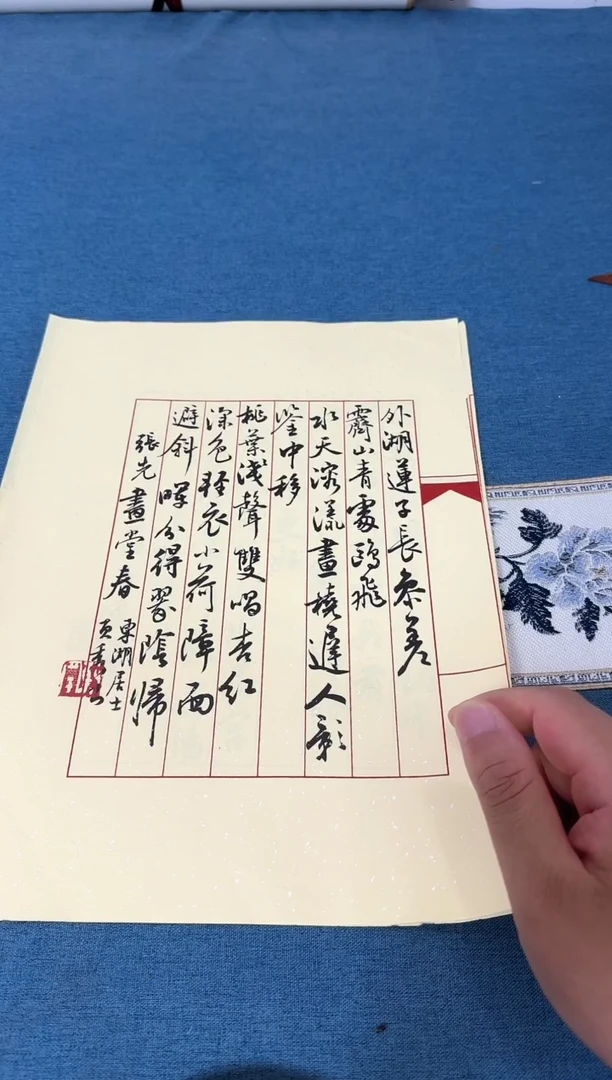 外湖蓮子長參差
霽山青處鷗飛
水天溶漾畫橈遲人影
鉴中移
桃葉淺聲雙唱杏紅
深色輕衣小荷障面
避斜暉分得翠陰歸
張先畫堂春
東湖居士